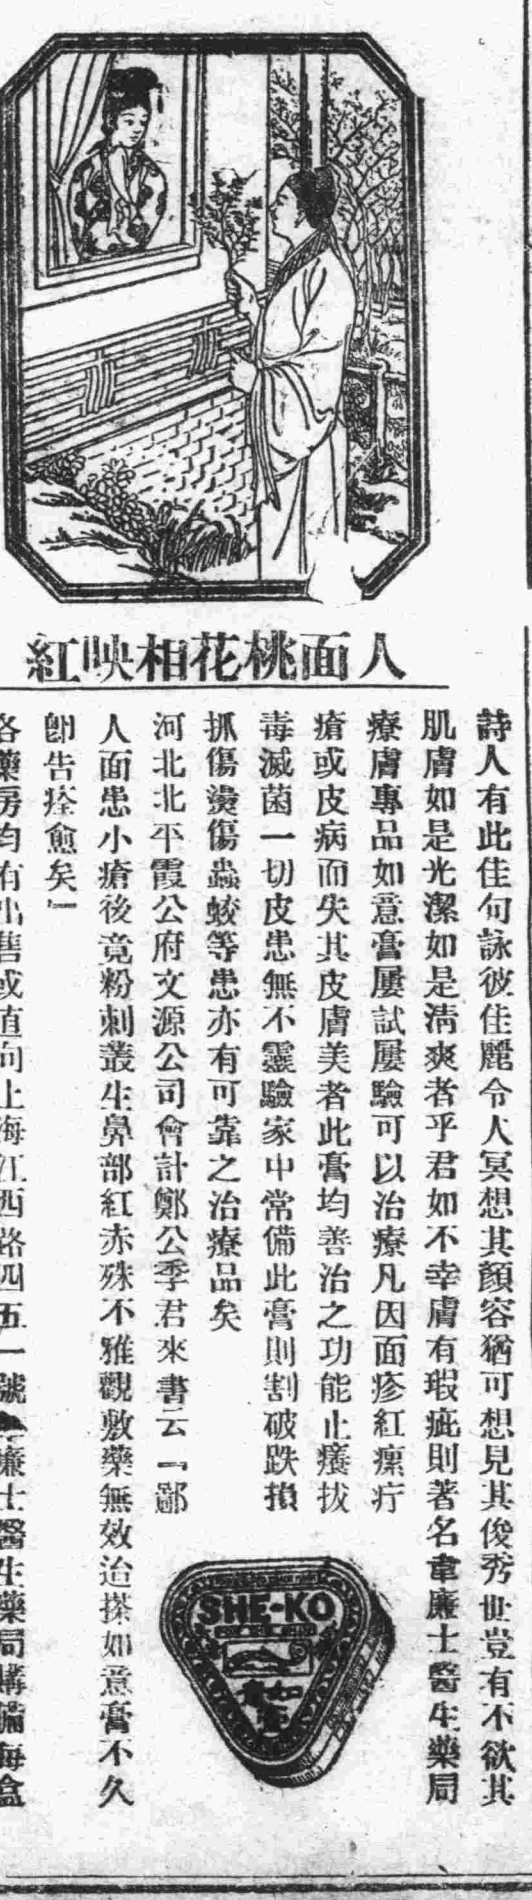 人面桃花相映紅
詩人有此佳句詠彼佳麗令人冥想其顏容猶可想見其俊秀世豈有不欲其
肌膚如是光潔如是淸爽者乎君如不幸膚有瑕疵則著名韋廉士醫生藥局
療膚專品如意膏屢試屢驗可以治療凡因面疹紅瘰疔
瘡或皮病而失其皮膚美者此膏均善治之功能止癢拔
毒滅菌一切皮患無不靈驗家中常備此膏則割破跌損
抓傷燙傷蟲蛟等患亦有可靠之治療品矣
河北北平霞公府文源公司會計鄭公季君來書云『鄙
人面患小瘡後竟粉刺叢生鼻部紅赤殊不雅觀敷藥無效迨搽如意膏不久
卽告痊愈矣』
各藥房均有出售或直向上海江西路四五一號韋廉士醫生藥局購備每盒
SHE-KO
如意膏